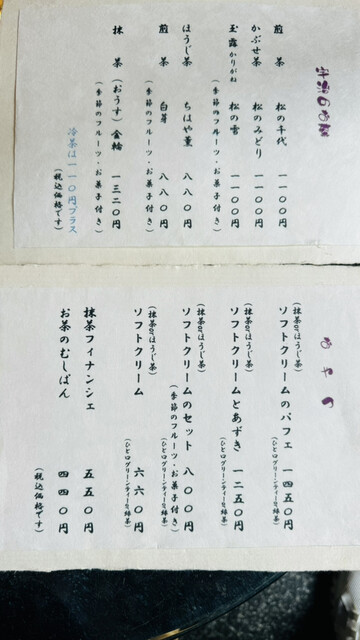 煎茶 松の千代 一一〇〇円
かぶせ茶 松のみどり 一一〇〇円
玉露かりがね 松の雪 一一〇〇円
(季節のフルーツ・お菓子付き)
ほうじ茶 ちはや薫 八八〇円
煎茶 白芽 八八〇円
(季節のフルーツ・お菓子付き)
抹茶(おうす)金輪 一三二〇円
(季節のフルーツ・お菓子付き)
冷茶は一一〇円プラス
(税込価格です)
おやつ
(抹茶orほうじ茶)
ソフトクリームのパフェ 一四五〇円
(ひと口グリーンティーor緑茶)
(抹茶orほうじ茶)
ソフトクリームとあずき 一二五〇円
(ひと口グリーンティーor緑茶)
(抹茶orほうじ茶)
ソフトクリームのセット 八〇〇円
(季節のフルーツ・お菓子付き)
(抹茶orほうじ茶)
ソフトクリーム 六六〇円
(ひと口グリーンティーor緑茶)
抹茶フィナンシェ 五五〇円
お茶のむしぱん 四四〇円
(税込価格です)